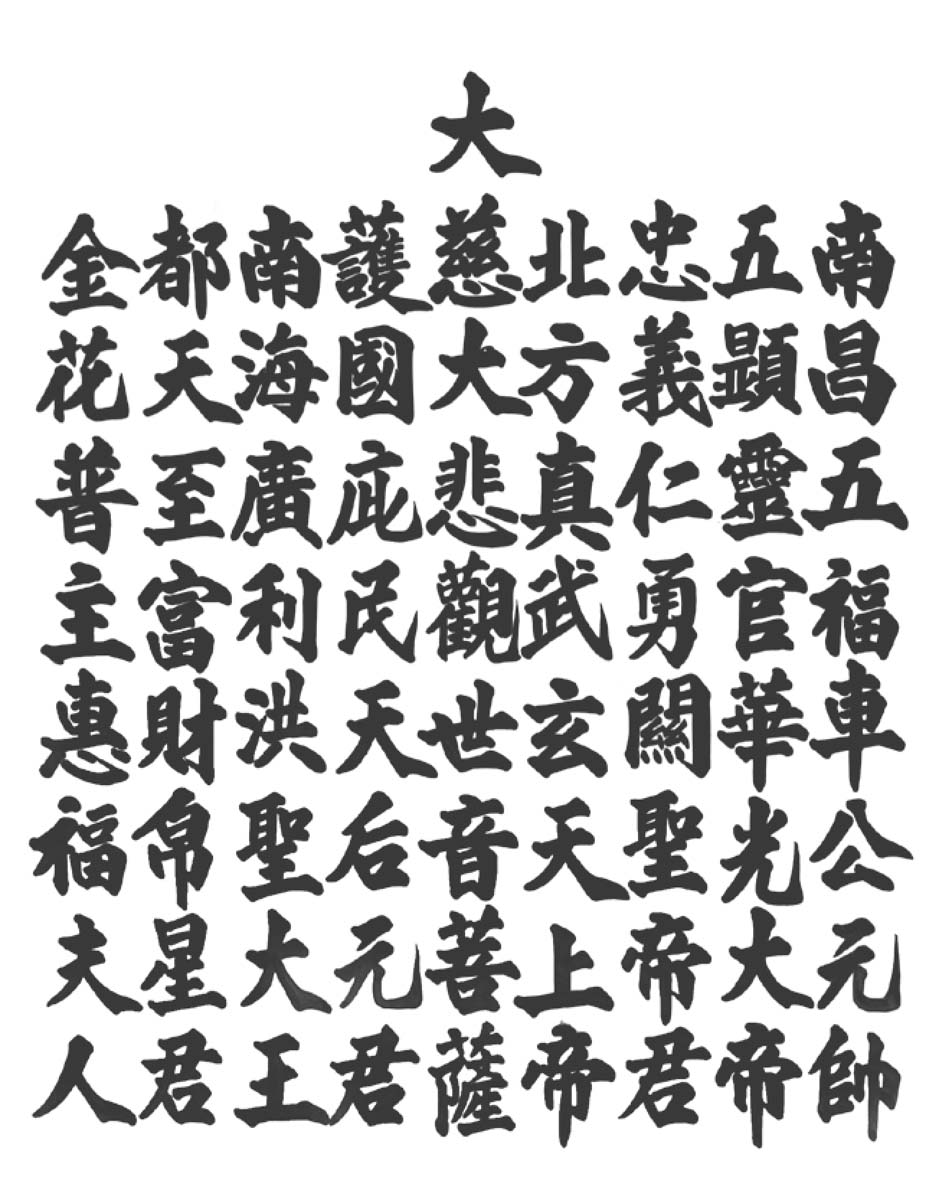 南昌五福車公元帥
五顕靈官華光大帝
忠義仁勇關聖帝君
北方真武玄天上帝
大慈大悲觀世音菩薩
護國庇民天后元君
南海廣利洪聖大王
都天至富財帛星君
金花普主惠福夫人